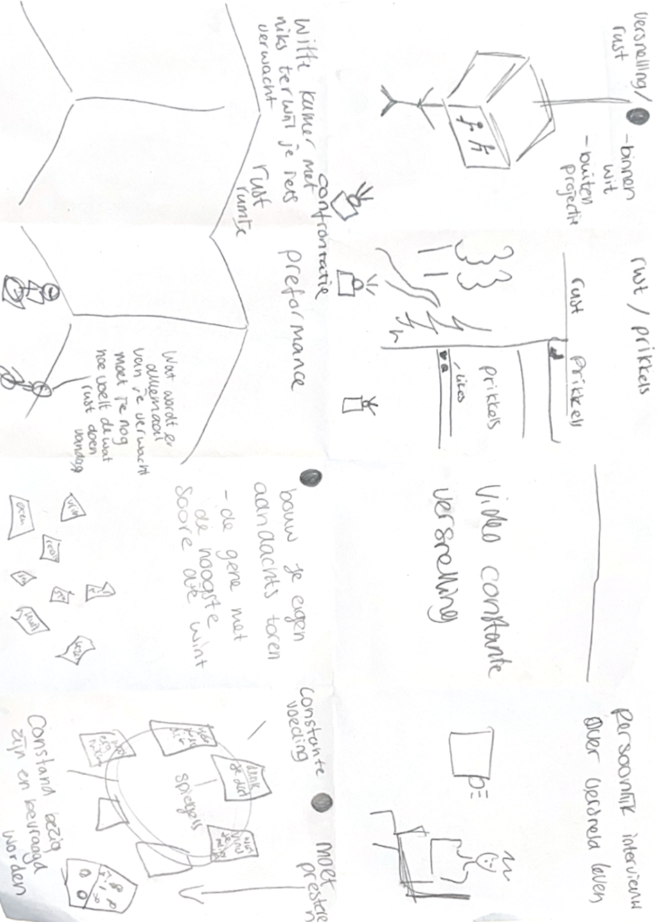 versnelling/
rust
- binnen
wit
- buiten
projectie
rust / prikkels
rust
prikkels
prikkels
likes
video constante
versnelling
Persoonlijk interview
over versneld leven
confrontatie
witte kamer met
niks terwijl je iets
verwacht
rust
ruimte
preformance
Wat wordt er
allemaal
van je verwacht
moet je nog
hoe voelt de wat
rust doen
vandaag
bouw je eigen
aandachts toren
- de gene met
de hoogste
soore die wint
constante
voeding
moet
prestere
spiegels
Constand bezig
zijn en bevraagd
worden